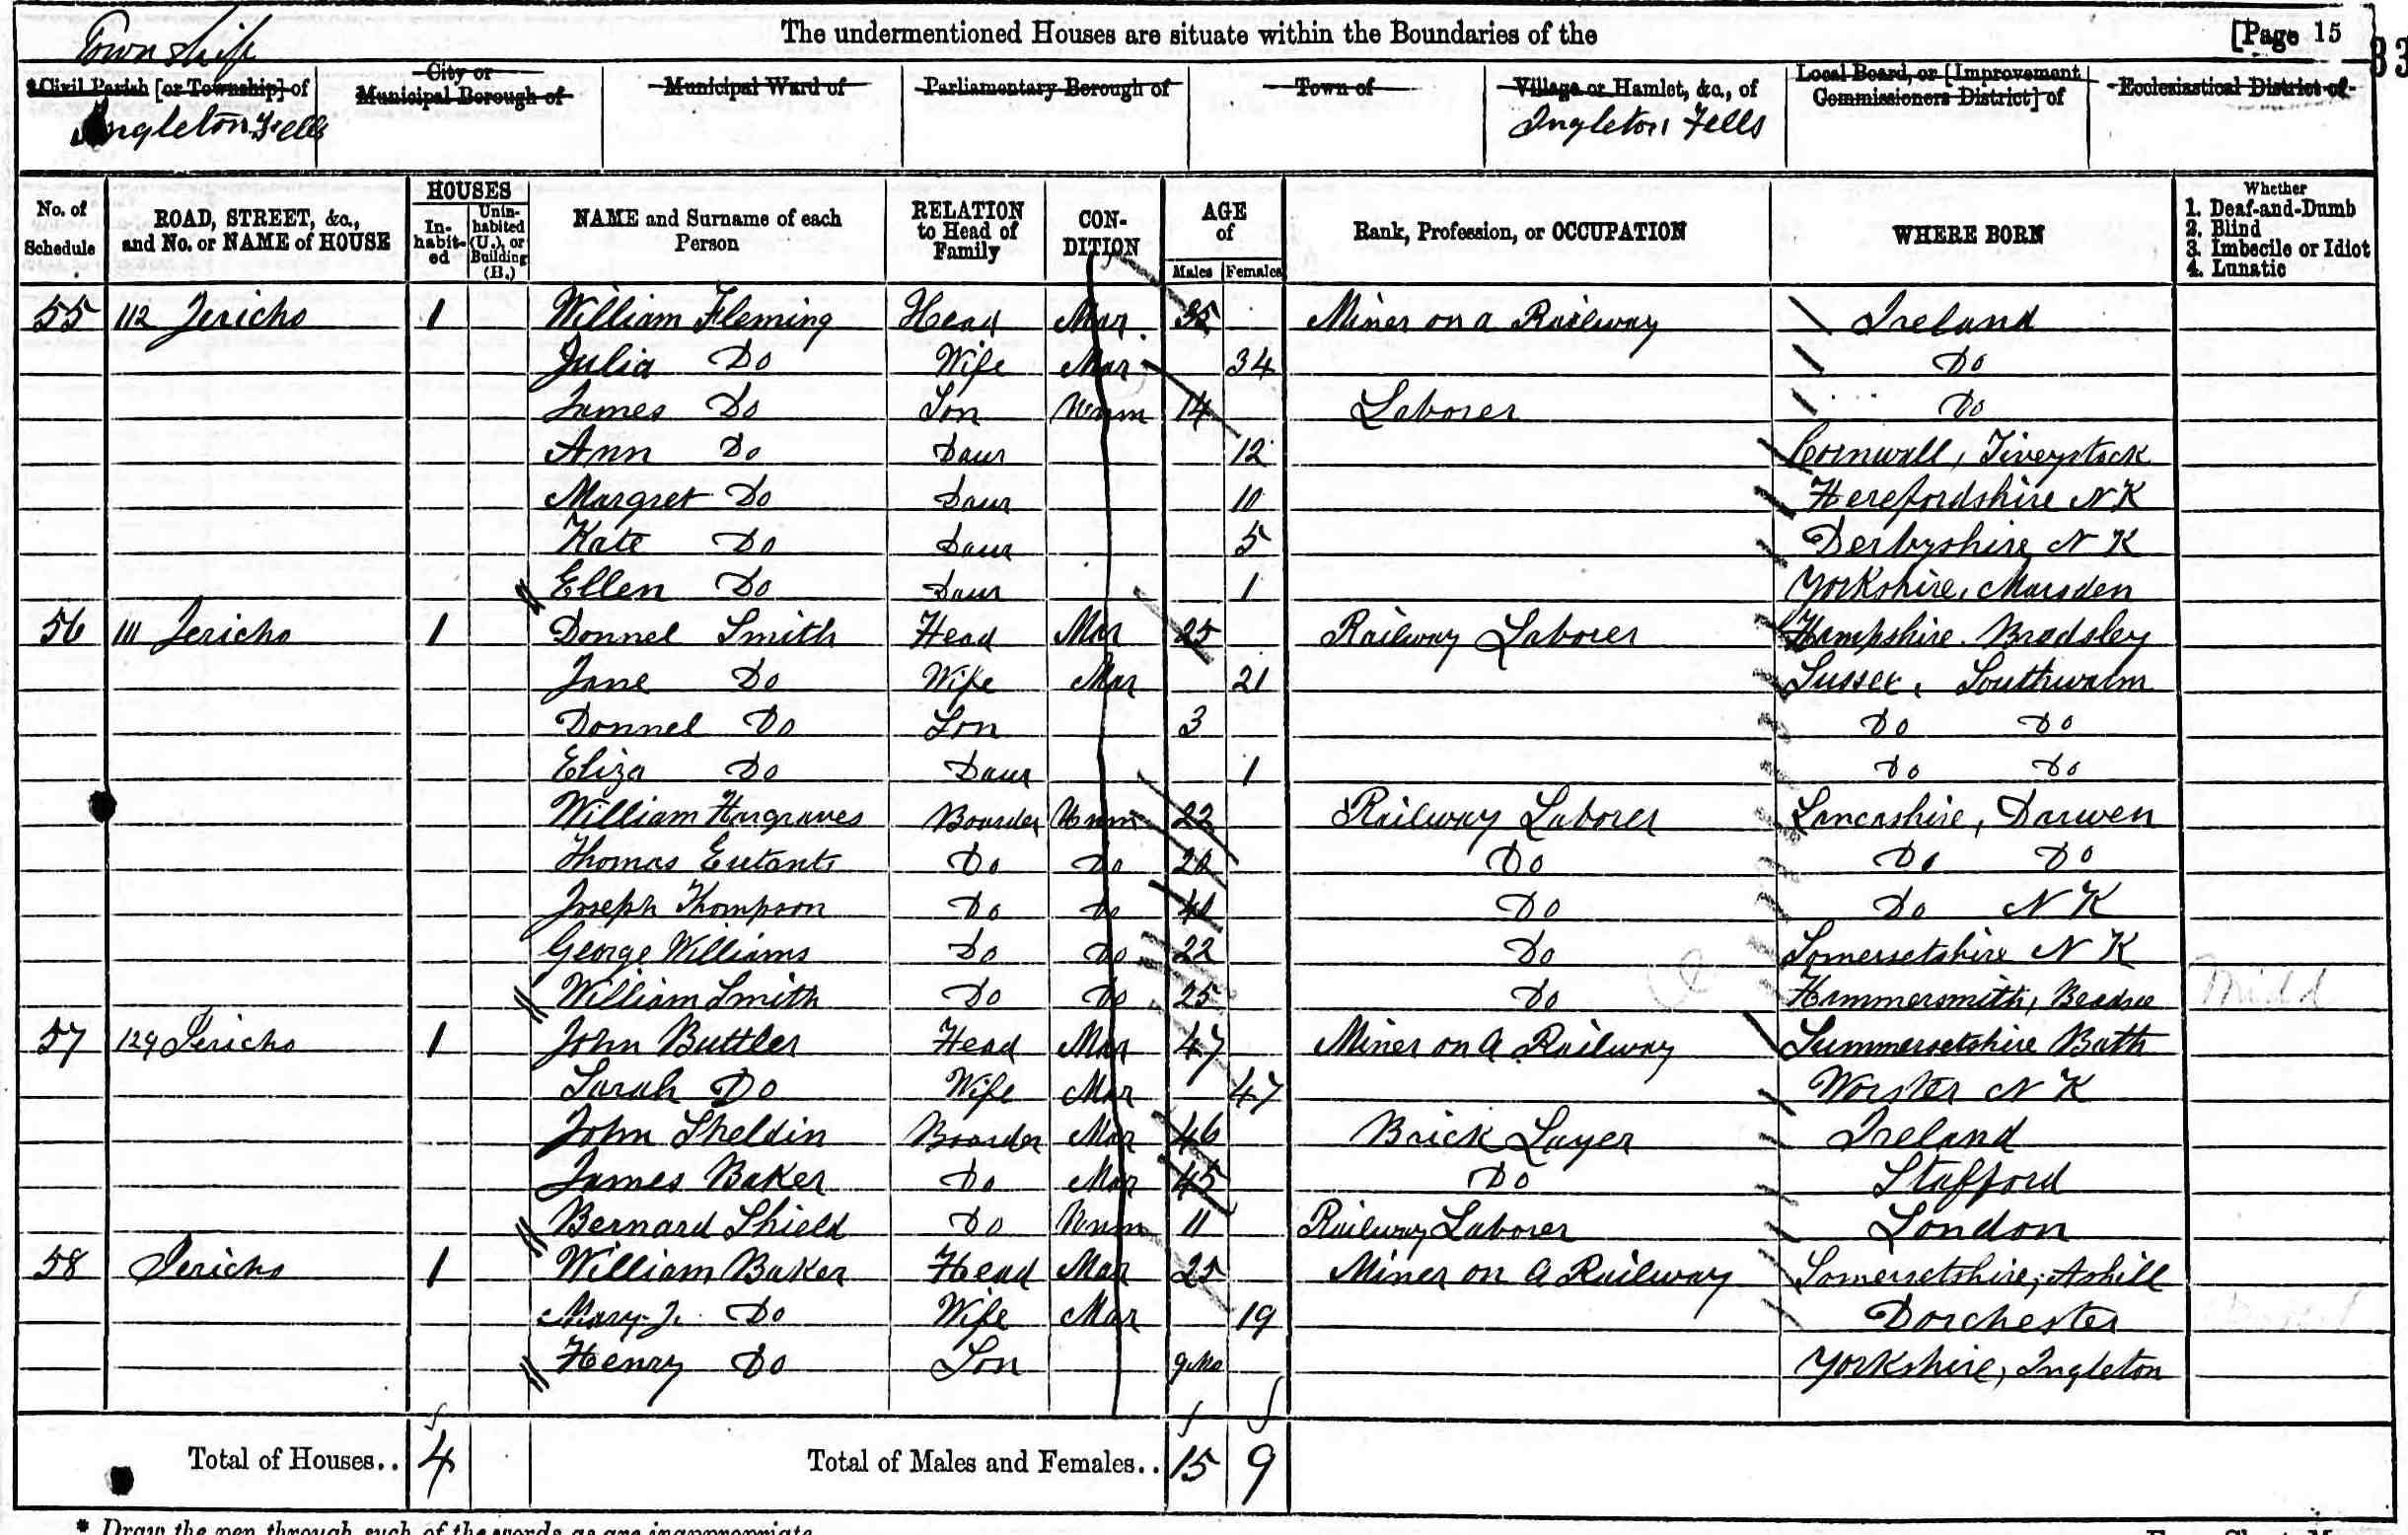 The undermentioned Houses are situate within the Boundaries of the
[Page 15
33
Township
*Civil Parish [or Township] of
City or Municipal Borough of
Municipal Ward of
Parliamentary Borough of
Town of
Village or Hamlet, &c., of
Local Board, or [Improvement Commissioners District] of
Ecclesiastical District of
Ingleton Fells
Ingleton Fells
No. of Schedule
ROAD, STREET, &c., and No. or NAME of HOUSE
HOUSES
In-habit-ed
Unin-habited (U.), or Building (B.)
NAME and Surname of each Person
RELATION to Head of Family
CON-DITION
AGE of
Males
Females
Rank, Profession, or OCCUPATION
WHERE BORN
Whether
1. Deaf-and-Dumb
2. Blind
3. Imbecile or Idiot
4. Lunatic
55 112 Jericho 1 William Fleming Head Mar 35 Miner on a Railway Ireland
Julia Do Wife Mar 34 Do
James Do Son Unm 14 Laborer Do
Ann Do Daur 12 Cornwall, Tiveystock
Margret Do Daur 10 Herefordshire N K
Kate Do Daur 5 Derbyshire N K
Ellen Do Daur 1 Yorkshire, Marsden
56 111 Jericho 1 Donnel Smith Head Mar 25 Railway Laborer Hampshire. Bradsley
Jane Do Wife Mar 21 Sussex, Southwarm
Donnel Do Son 3 Do Do
Eliza Do Daur 1 Do Do
William Hargraves Boarder Unm 22 Railway Laborer Lancashire, Darwen
Thomas Do Do Do Do Do
Joseph Thompson Do Do Do Do N K
George Williams Do Do 22 Do Somersetshire N K
William Smith Do Do 25 Do Hammersmith, Midd
57 129 Jericho 1 John Buttler Head Mar 47 Miner on a Railway Summersetshire Bath
Sarah Do Wife Mar 47 Worster N K
John Sheldin Boarder Mar 46 Brick Layer Ireland
James Baker Do Mar 45 Do Stafford
Bernard Shield Do Unm 11 Railway Laborer London
58 Jericho 1 William Baker Head Mar 25 Miner on a Railway Somersetshire, Ashill
Mary J. Do Wife Mar 19 Dorchester
Henry Do Son 9 Mo Yorkshire, Ingleton
Total of Houses.. 4 Total of Males and Females.. 15 9
* Draw the pen through such of the words as are inappropriate.